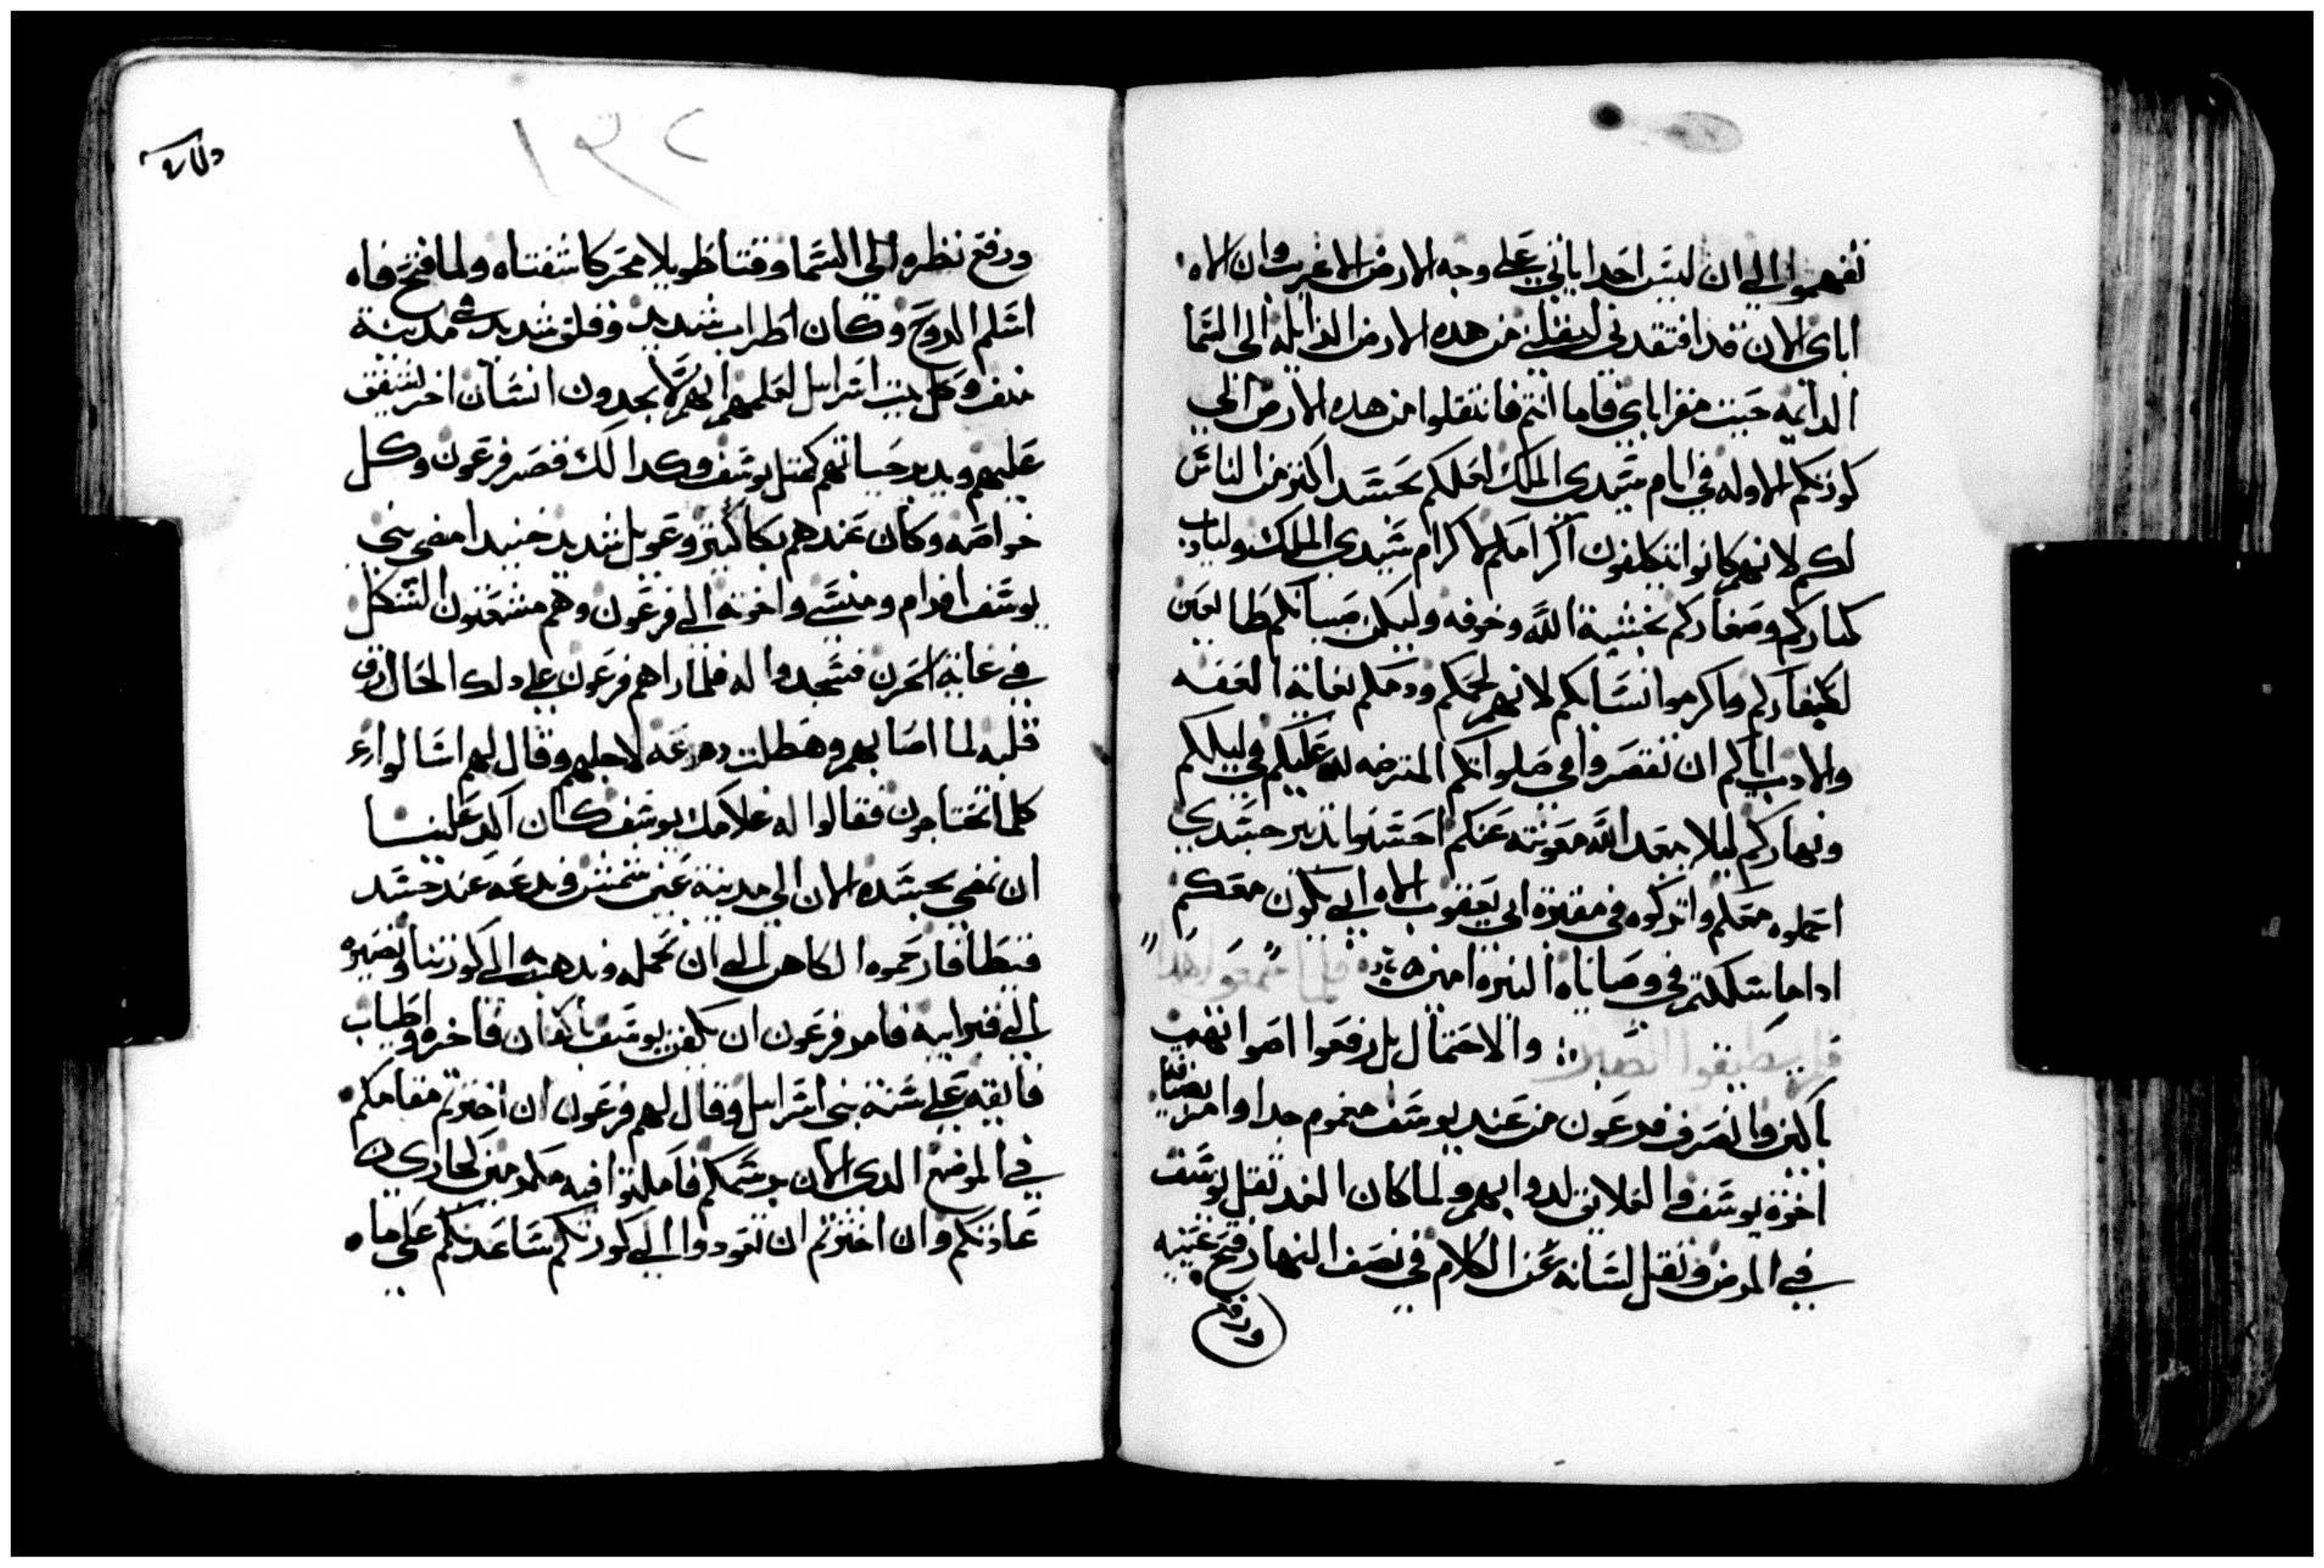 تفهموا الي ان ليس احدا باقي علي وجه الارض الا غريب وان الاه
اباي الان قد افتقدني لينقلني من هده الارض الزايله الي السما
الدايمه حيت مقر اباي فاما انتم فانتقلوا من هده الارض الي
كورتكم الاوله في ايام سيدي الملك احملكم بجسد اكتر من الناس
لكم لانهم كانوا يتكلفون اكرامكم لاكرام سيدي الملك وليادب
كباركم وصغاركم بخشية الله وخوفه وليكن صبيانكم طايعين
لكباركم واكرموا نسايكم لانهم لحمكم ودمكم بغاية العفه
والادب اياكم ان تقصروا في صلواتكم المفترضه لله عليكم في ليلكم
ونهاركم ليلا يبعد الله معونته عنكم احسنوا تدبير جسدي
احملوه معكم واتركوه في مقبرة ابي يعقوب الاه ابي يكون معكم
اداما سلكتم في وصاياه النيره امين فلما سمعوا هدا
فلم يطيقوا الصبر والاحتمال بل رفعوا اصواتهم
باكيين وانصرف فرعون من عند يوسف مغموم جدا وامر ايضا
اخوة يوسف والخلايق لدوابهم ولما كان الغد تقل يوسف
في المرض وتقل لسانه عن الكلام في نصف النهار فتح عينيه
ورفع
١٣٢
ورفع نظره الي السما وقتا طويلا محركا شفتاه ولما فتح فاه
اسلم الروح وكان اطراب شديد وقلق شديد في مدينة
منف وكل بيت اسراييل لعلمهم انهم لا يجدون انسان اخر يشفق
عليهم ويدبر حياتهم كمتل يوسف وكدالك قصر فرعون وكل
خواصه وكان عندهم بكا كبير وعويل شديد حنيدا مضي بني
يوسف افرام ومنسي واخوته الي فرعون وهم مشغنون الشكل
في غاية الحزن فسجدوا له فلما راهم فرعون علي دلك الحال رق
قلبه لما اصابهم وهطلت دموعه لاجلهم وقال لهم اسالوا
كلما تحتاجون فقالوا له غلامك يوسف كان اكد علينا
ان نمضي بجسده الان الي مدينة عين شمس وندعه عند جسد
فنطافارحموه الكاهن الي ان نحمله وندهب الي كورتنا ونصيره
الي قبر ابيه فامر فرعون ان يكفن يوسف باكفان فاخره واطياب
فايقه علي سنة بني اسراييل وقال لهم فرعون ان اخترتم مقامكم
في الموضع الدي الان برسمكم فامكتوا فيه مكرمين كجاري
عادتكم وان اخترتم ان تعودوا الي كورتكم ساعدتكم علي ما